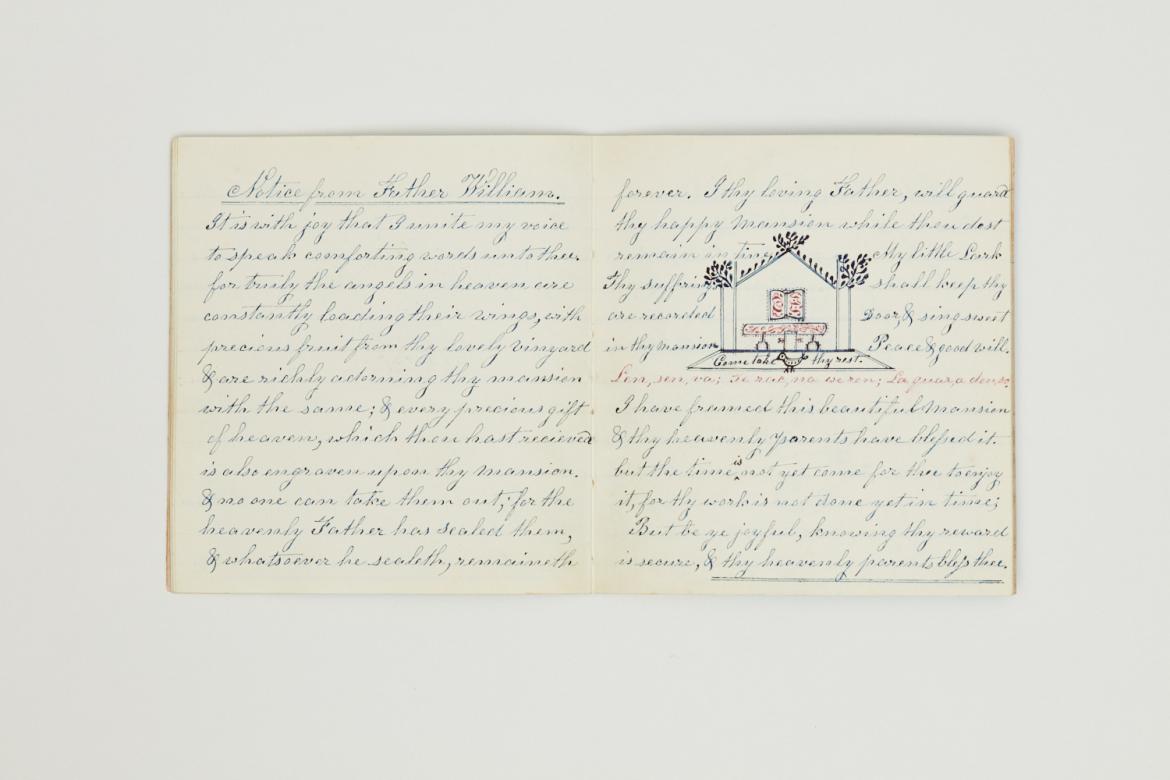 Notice from Father William.
It is with joy that I unite my voice
to speak comforting words unto thee.
for truly the angels in heaven are
constantly loading their wings, with
precious fruit from thy lovely vinyard
& are richly adorning thy mansion
with the same; & every precious gift
of heaven, which thou hast recieved
is also engraven upon thy mansion.
& no one can take them out; for the
heavenly Father has sealed them,
& whatsoever he sealeth, remaineth
forever. I thy loving Father, will guard
thy happy Mansion while thou dost
remain in time My little Lark
Thy suffrings shall keep thy
are recorded Door, & sing sweet
in thy mansion Peace & good will.
Come take thy rest.
Len, sen, va; ne ren; La
I have framed this beautiful Mansion
& thy heavenly Parents have blessed it.
but the time is not yet come for thee to enjoy
it, for thy work is not done yet in time;
But be ye joyful, knowing thy reward
is secure, & thy heavenly parents bless thee.